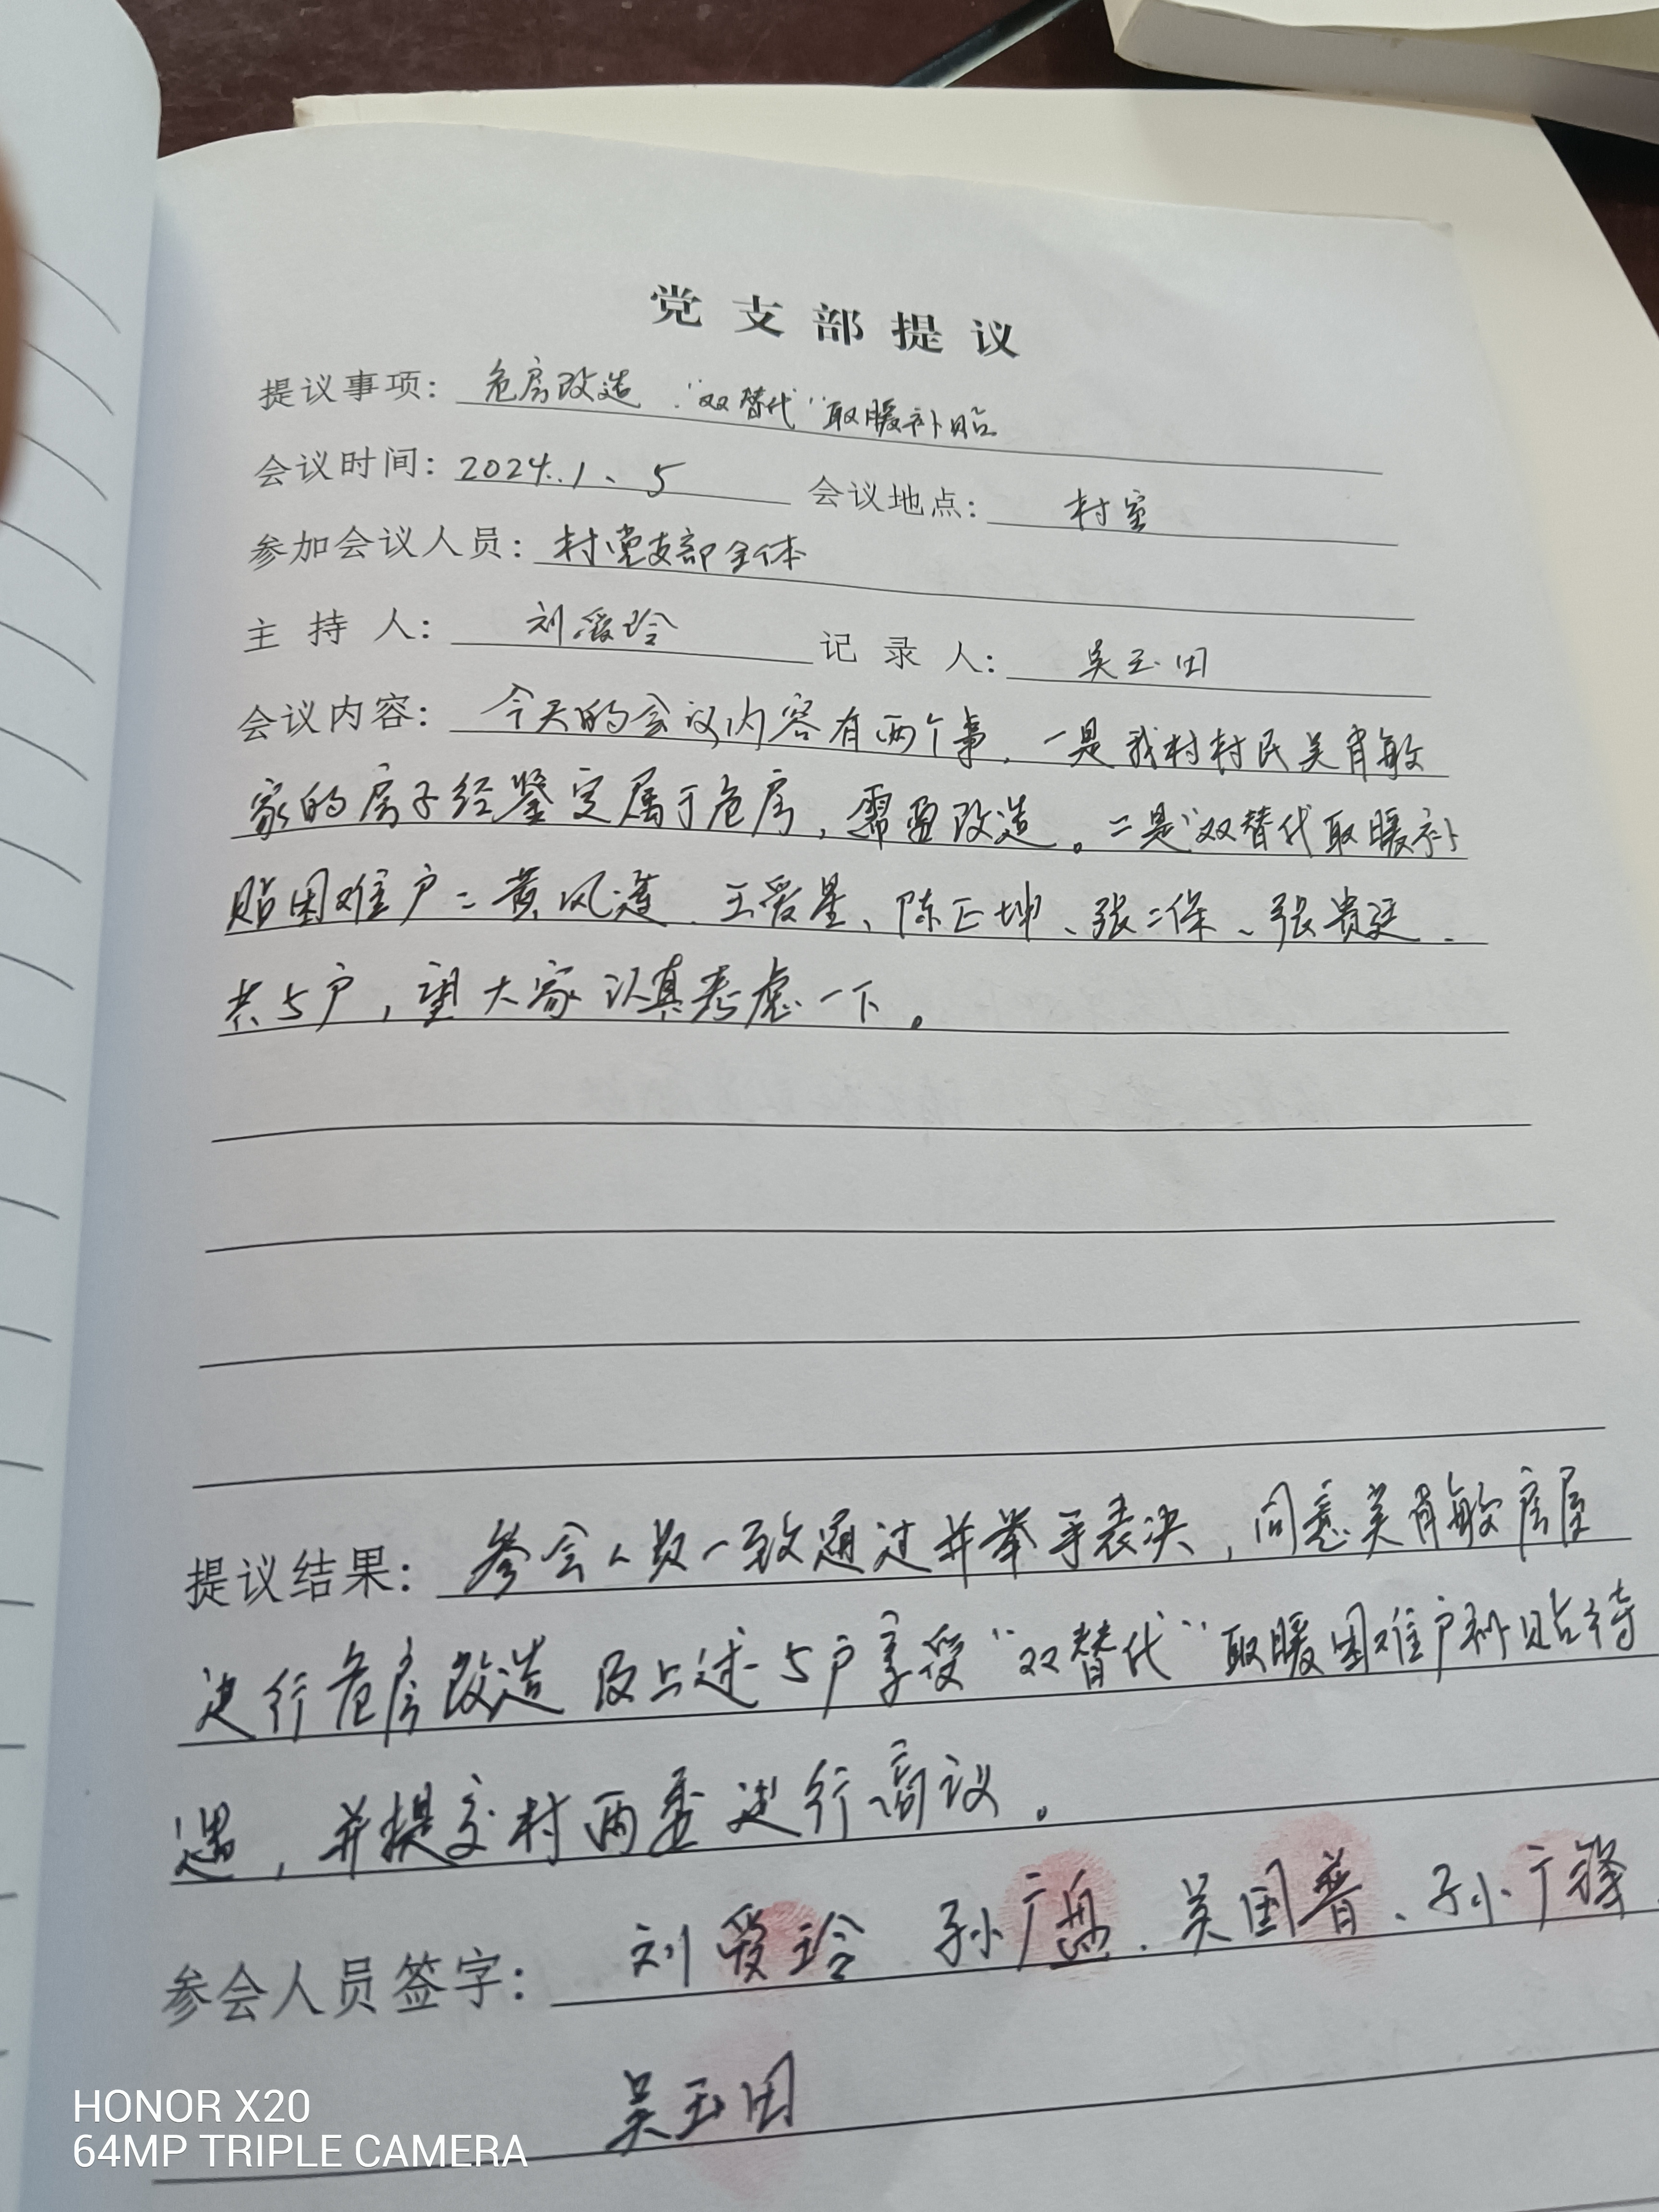 党支部提议
提议事项: 危房改造、“双替代”取暖补贴
会议时间: 2024.1、5 会议地点: 村室
参加会议人员: 村党支部全体
主 持 人: 刘爱玲 记 录 人: 吴玉田
会议内容: 今天的会议内容有两个事,一是我村村民吴肖敏
家的房子经鉴定属于危房,需要改造。二是“双替代取暖补
贴困难户:黄风莲、王爱星、陈正坤、张二保、张贵廷、
共5户,望大家认真考虑一下。
提议结果: 参会人员一致通过并举手表决,同意吴肖敏房屋
进行危房改造及上述5户享受“双替代”取暖困难户补贴待
遇,并提交村两委进行商议。
参会人员签字: 刘爱玲、孙广、吴国普、孙广锋、
吴玉田
HONOR X20
64MP TRIPLE CAMERA